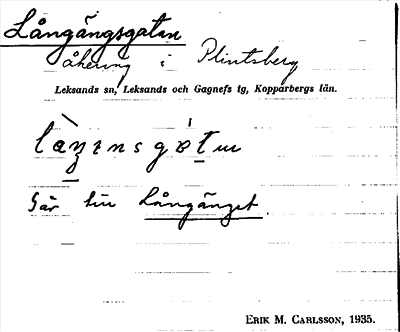 Långängsgatan
åkerväg i Plintsberg
Leksands sn, Leksands och Gagnefs tg, Kopparbergs län.
Går till Långänget.
ERIK M. CARLSSON, 1935.